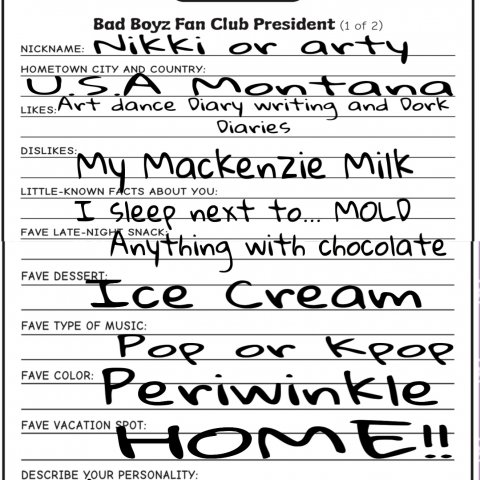 Bad Boyz Fan Club President (1 of 2)
NICKNAME: Nikki or arty
HOMETOWN CITY AND COUNTRY:
U.S.A Montana
LIKES: Art dance Diary writing and Dork
Diaries
DISLIKES:
My Mackenzie Milk
LITTLE-KNOWN FACTS ABOUT YOU:
I sleep next to... MOLD
FAVE LATE-NIGHT SNACK:
Anything with chocolate
FAVE DESSERT:
Ice Cream
FAVE TYPE OF MUSIC:
Pop or Kpop
FAVE COLOR: Periwinkle
FAVE VACATION SPOT:
HOME!!
DESCRIBE YOUR PERSONALITY: